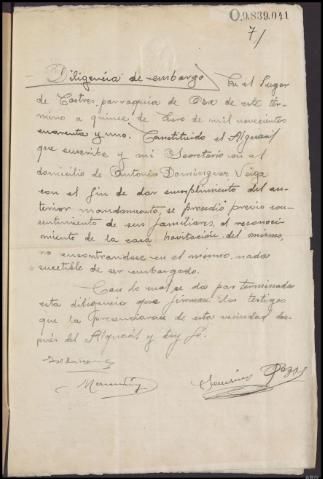 O.9.839.041
7/
Diligencia de embargo / En el Lugar
de Castres, parroquia de de este tér-
mino a quince de de mil novecientos
cuarenta y uno. Constituido el Alguacil
que suscribe y mi Secretario en el
domicilio de Antonio Dominguez Veiga
con el fin de dar cumplimiento del an-
terior mandamiento, se procedió previo con-
sentimiento de sus familiares, el reconoci-
miento de la casa habitación del mismo,
no encontrandose en el mismo, nada
sucetible de ser embargado.
Con lo cual se da por terminada
esta diligencia que firman los testigos
que la Presenciaron de esta vecindad des-
pués del Alguacil y doy fé.